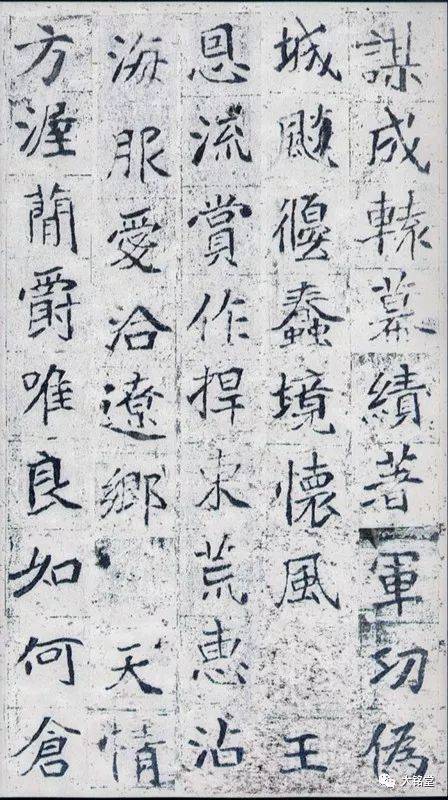 謀成轅幕績著軍功偽
城偃境懷風 王
恩流賞作捍東荒惠沾
海服愛洽遼鄉 天情
方渥蕑爵唯良如何倉
大铭堂